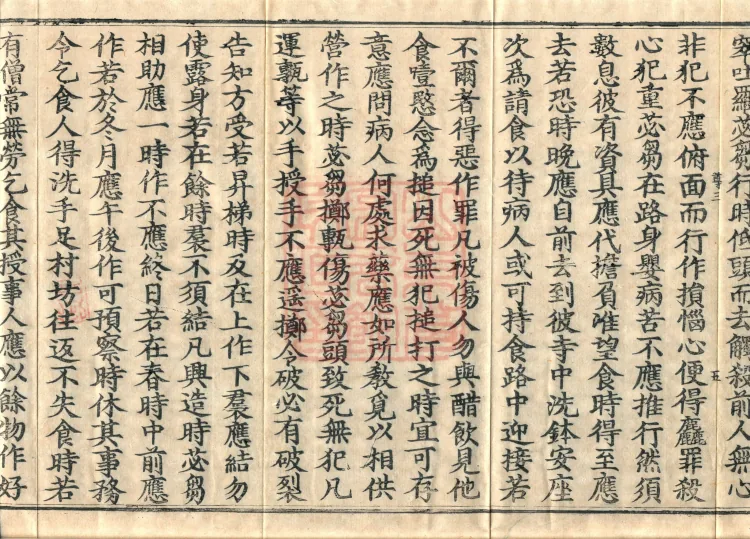 窣吐羅苾芻行時低頭而去觸殺前人無心
尊三
五
非犯不應俯面而行作損惱心便得麤罪殺
心犯重苾芻在路身嬰病苦不應推行然須
數息彼有資具應代擔負唯望食時得至應
去若恐時晚應自前去到彼寺中洗鉢安座
次為請食以待病人或可持食路中迎接若
不爾者得惡作罪凡被傷人勿與醋飲見他
食噎愍念為搥因死無犯搥打之時宜可存
意應問病人何處求藥應如所教覓以相供
營作之時苾芻擲甎傷苾芻頭致死無犯凡
運甎等以手授手不應遥擲令破必有破裂
告知方受若昇梯時及在上作下裠應結勿
使露身若在餘時裠不須結凡興造時苾芻
相助應一時作不應終日若在春時中前應
作若於冬月應午後作可預察時休其事務
令乞食人得洗手足村坊往返不失食時若
有僧常無勞乞食其授事人應以餘物作好